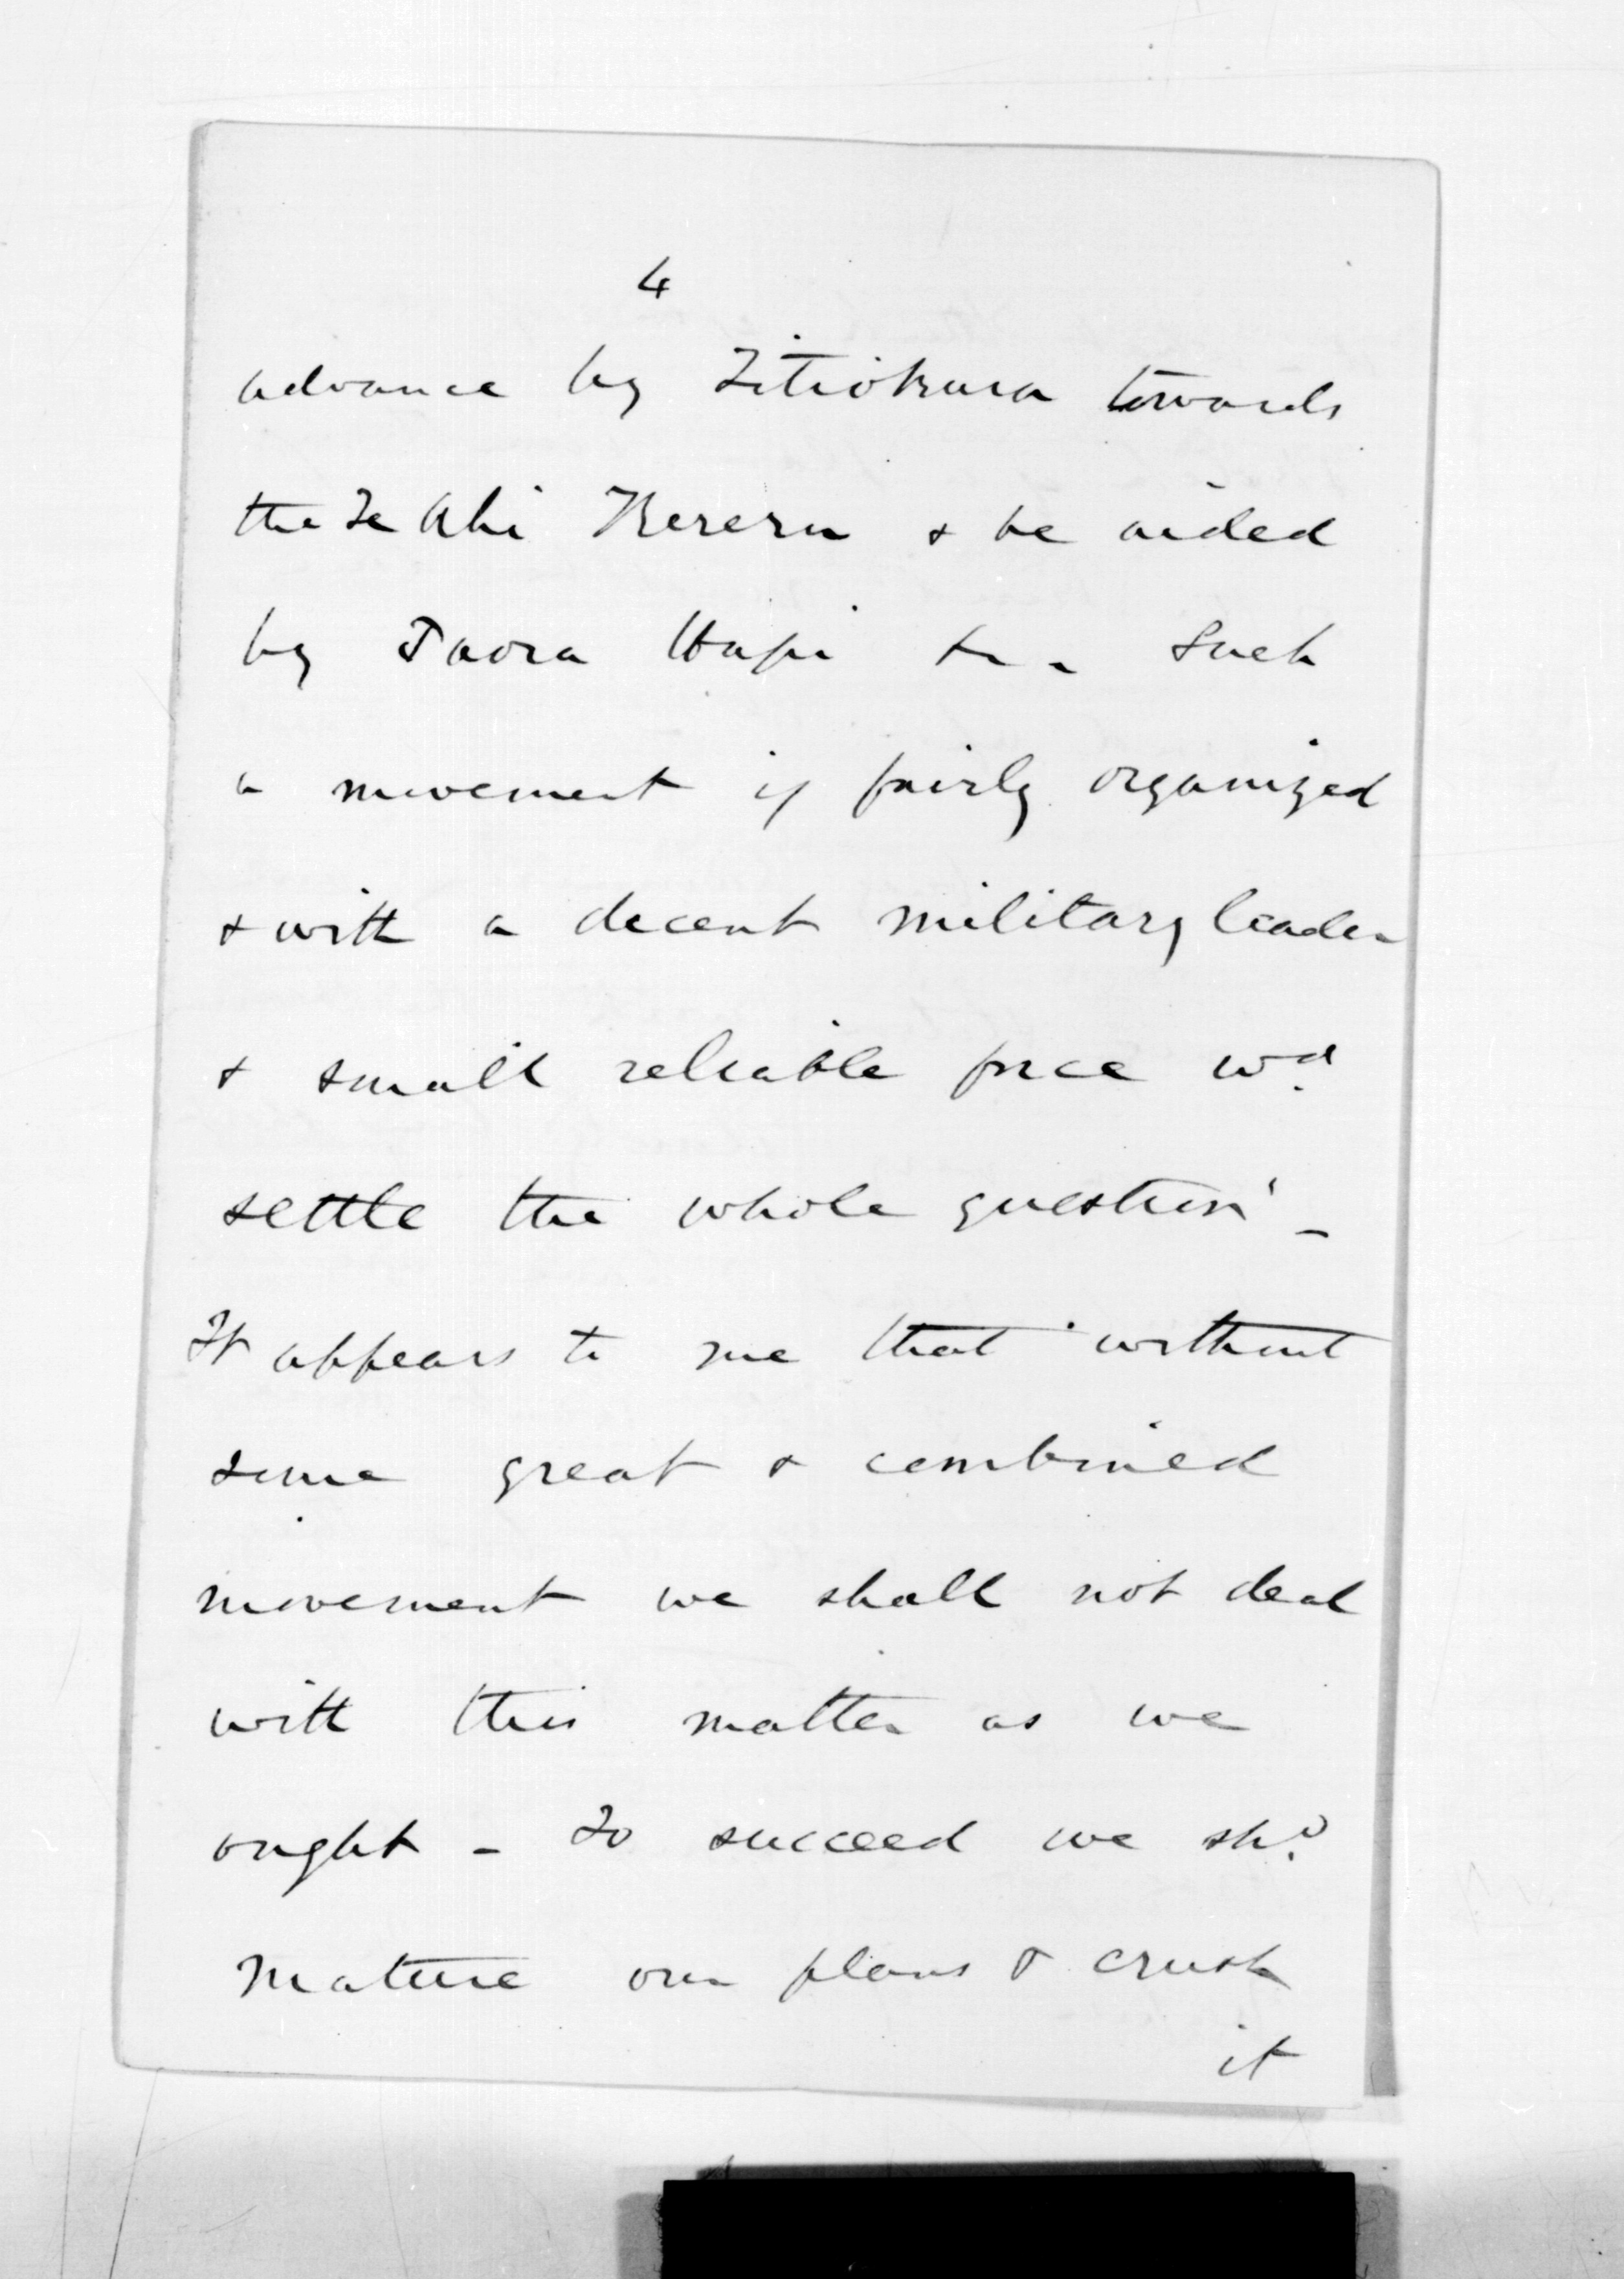 4
advance by Titiokura towards
the Te Ahi Kereru & be aided
by Paora Hapi &c. Such
a movement if fairly organized
& with a decent military leader
& small reliable force wd.
settle the whole question -
It appears to me that without
some great & combined
movement we shall not deal
with this matter as we
ought - To succeed we shd.
mature our plans & crush
it